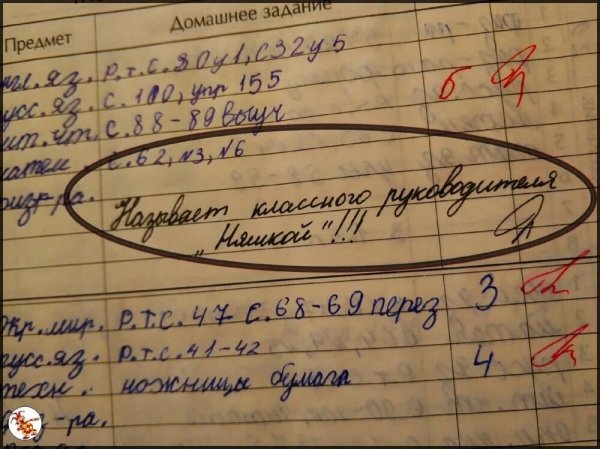 Предмет Домашнее задание
нгл.яз. Р.т.с.30у1, с32у5
усс.яз. с.110, упр 155 5
ит.чт. с.88-89 выуч
матем. с.62, №3, №6
физк-ра.
Называет классного руководителя
„Няшкой“!!!
окр.мир. Р.т.с.47 с.68-69 перез 3
русс.яз. Р.т.с.41-42 4
техн. ножницы бумага
физ-ра.